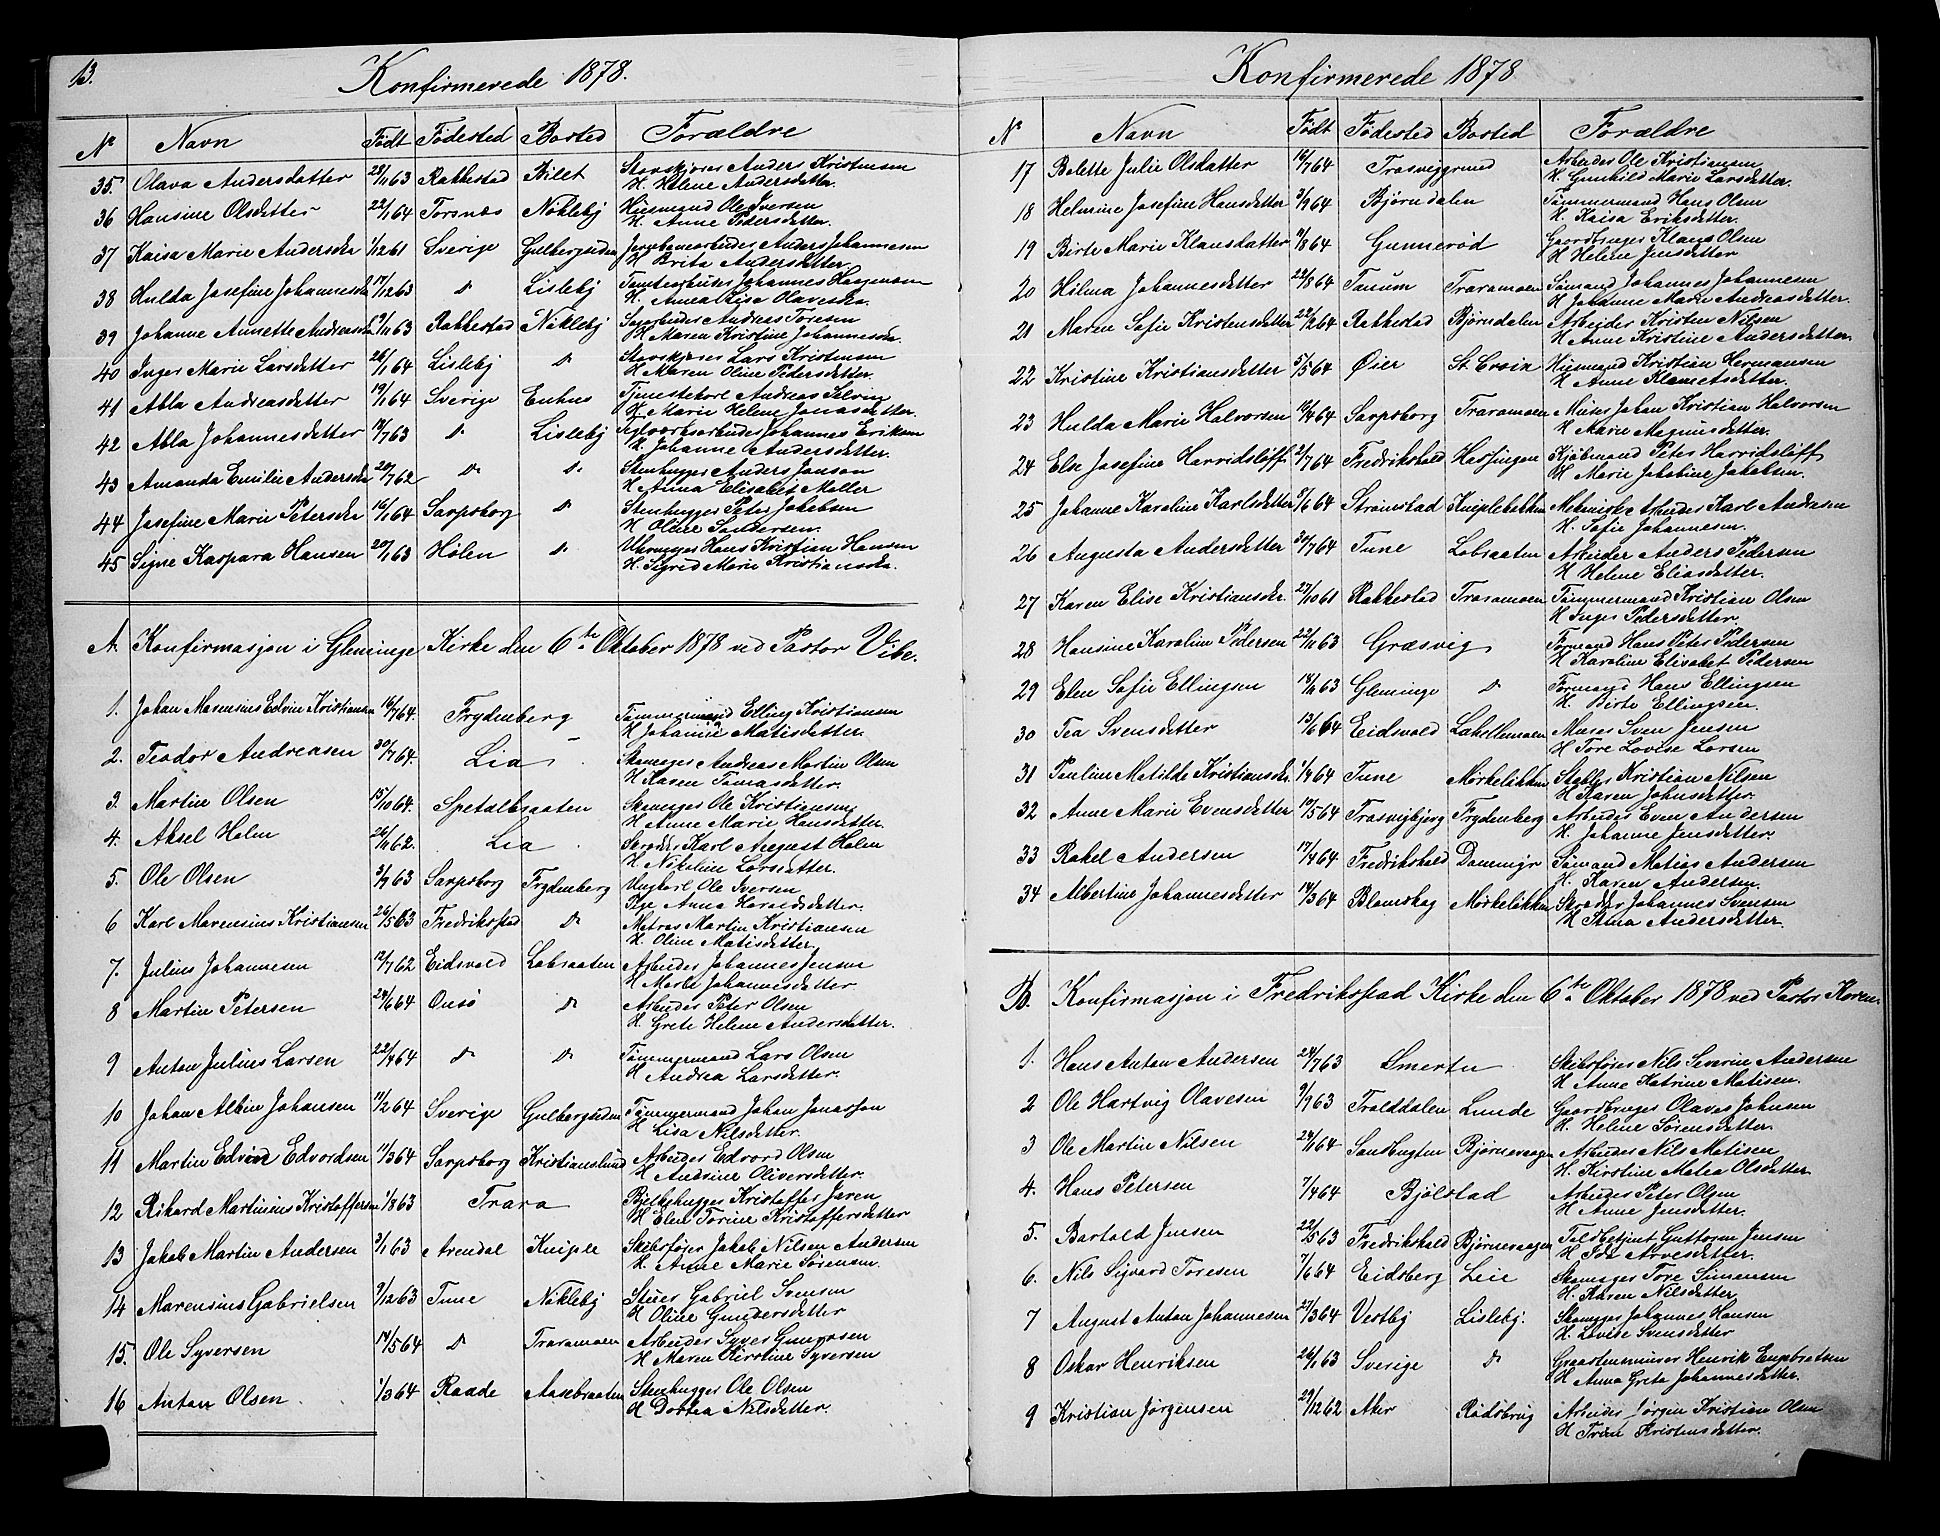 13.
Konfirmerede 1878.
No Navn Født Fødested Bosted Forældre
35. Olava Andersdatter 23/11 63 Rakkestad Bilet Anders Kristensen
H. Helene Andersdetter.
36 Hansine Olsdetter 22/1 64 Torsnæs Nøkleby Husmand Ole Iversen
H. Anne Pedersdetter.
37 Kaisa Marie Andersdtr 1/12 61 Sverige Jernbanearbeider Anders Johannesen
H Brita Andersdetter
38 Hulda Josefine 17/12 63 do Lisleby Johannes
H. Anna Lisa
39 Johanne Annette 9/11 63 Rakkestad Nøkleby Andreas Toresen
H Maren Kristine
40 Inger Marie Larsdetter 26/1 64 Lisleby do Lars Kristensen
H Maren Oline Pedersdetter.
41 Abla Andreasdetter 19/1 64 Sverige Enhus Andreas
Marie Helene Jonasdetter.
42 Abla Johannesdetter 18/7 63 do Lisleby Johannes Eriksen
H. Johanne Andersdetter.
43 Amanda Emilie 20/7 62 do do Stenhugger Anders Janson
H Anna Elisabet Møller
44 Josefine Marie 16/1 64 Sarpsborg do Stenhugger Peter Jakobsen
H Oline Sandersen.
45 Signe Kaspara Hansen 20/1 63 Hølen do Uhrmager Hans Kristian Hansen
H. Sigrid Marie
A. Konfirmasjon i Gleminge Kirke den 6te Oktober 1878 ved Pastor Vibe.
1. Johan Marensius Edvin Kristiansen 16/7 64. Frydenberg Tømmermand Elling Kristiansen
H Johanne Matisdetter.
2. Teodor Andreasen 30/7 64. Lia Skomager Andreas Martin Olsen
H Karen Tomasdetter.
3. Martin Olsen 15/10 64. Spetalbraaten Skomager Ole Kristiansen
H Anne Marie Hansdetter.
4. Aksel Holm 26/11 62. Lia Skredder Karl August Holm
H. Nikoline Larsdatter.
5. Ole Olsen 3/9 63 Sarpsborg Frydenberg Ungkarl Ole Iversen
Pge Anna Haraldsdetter.
6 Karl Marensius Kristiansen 26/5 63 Fredrikstad do Matros Martin Kristiansen
H. Oline Matisdetter
7. Julius Johannesen 12/7 62 Eidsvold Labraaten Arbeider Johannes Jensen
H Marte Johannesdetter
8 Martin Petersen 24/6 64 Onsø do Arbeider Peter Olsen
H. Grete Helene Andersdetter.
9 Anton Julius Larsen 22/4 64 do do Tømmermand Lars Olsen
H Andrea Larsdetter.
10 Johan Albin Johansen 11/2 64 Sverige Tømmermand Johan Jonasson
H Lisa Nilsdetter
11 Martin Edvin Edvordsen 11/3 64 Sarpsborg Kristianslund Arbeider Edvord Olsen
H Andrine Oliversdetter.
12 Rikard Martinius Kristoffersen 1/8 63 Trara Bjelkehugger Kristoffer Jaren
H Elen Torine Kristoffersdetter
13 Jakob Martin Andersen 3/1 63 Arendal Kniple Skibsfører Jakob Nilsen Andersen
H. Anne Marie Sørensen.
14 Marensius Gabrielsen 9/12 63 Tune Nøkleby Stuer Gabriel Svensen
H Oline Gundersdetter
15. Ole Syversen 14/5 64 do Traramoen Arbeider Syver
H Maren Kirstine Syversen
16 Anton Olsen 1/3 64 Raade Aasebraaten Stenhugger Ole Olsen
H Dortea Nilsdetter.
Konfirmerede 1878
No Navn Født Fødested Bosted Forældre
17 Bolette Julie Olsdatter 16/7 64 Trosviggrund Arbeider Ole Kristiansen
H. Gunhild Marie Larsdetter.
18 Helmine Josefine Hansdetter 3/9 64 Bjørndalen Tømmermand Hans Olsen
H. Kaisa Eriksdetter.
19 Birte Marie Klausdatter 9/8 64 Gunnerød Gaardbruger Klaus Olsen
H Helene Jensdetter
20 Hilma Johannesdetter 22/8 64 Tanum Traramoen Sømand Johannes Johannesen
H Johanne Marie Andreasdetter.
21 Maren Sofie Kristensdetter 22/2 64 Rakkestad Bjørndalen Arbeider Kristen Nilsen
H Anne Kristine Andersdetter.
22 Kristine Kristiansdetter 5/5 64 Øier St. Croix Husmand Kristian Hermansen
H Anne
23 Hulda Marie Halvorsen 16/4 64 Sarpsborg Traramoen Murer Johan Kristian Halvorsen
H Marie Magnusdetter.
24 Else Josefine Harridsleff 2/7 64 Fredrikshald Kjøbmand Peter Harridsleff
H Marie Jakobine Jakobsen.
25 Johanne Karoline Karlsdetter 9/6 64 Strømstad Kniplebakken Mekanisk Arbeider Karl Andresen
H. Sofie Johannesen.
26 Augusta Andersdetter 30/7 64 Tune Labraaten Arbeider Anders Pedersen
H Helene Eliasdetter.
27 Karen Elise 27/10 61 Rakkestad Traramoen Tømmermand Kristian Olsen
H Inger Pedersdetter.
28 Hansine Karoline Pedersen 22/11 63 Græsvig Formand Hans Peter Pedersen
H Karoline Elisabet Pedersen
29 Elen Sofie Ellingsen 18/11 63 Gleminge do Formand Hans Ellingsen
H. Birte Ellingsen.
30 Tea Svensdetter 13/6 64 Eidsvold Murer Sven Jensen
H Tore Lovise Larsen
31 Pauline Matilde 1/4 64 Tune Mørkelikken Kristian Nilsen
H Karen Johnsdetter.
32 Anne Marie Evensdetter 17/5 64 Trosvigbjerg Frydenberg Arbeider Even Andersen
H. Johanne Jensdetter.
33 Rakel Andersen 17/4 64 Fredrikshald Sømand Matias Andersen
H. Karen Andersen.
34 Albertine Johannesdetter 14/3 64 Mørkelikken Skredder Johannes Svensen
H Anna Andersdetter.
B. Konfirmasjon i Fredrikstad Kirke den 6te Oktober 1878 ved Pastor Koren.
1. Hans Anton Andersen 24/7 63 Smertu Skibsfører Nils Severin Andersen
H Anne Katrine Matisen.
2 Ole Hartvig Olavesen 9/9 63 Tralddalen Lunde Gaardbruger Olaves Johnsen
H. Helene Sørensdetter.
3 Ole Martin Nilsen 24/1 64 Sandbugten Bjørnevaagen Arbeider Nils Matisen
H. Kirstine Matea Olsdatter
4. Hans Petersen 7/4 64 Bjølstad Arbeider Peter Olsen
H Anne Jensdetter.
5. Bartold Jensen 22/5 63 Fredrikshald Bjørnevaagen Toldbetjent Guttorm Jensen
H. Ida
6. Nils Sigvard Toresen 7/6 64 Eidsberg Leie Skomager Tore Simensen
H. Karen Nilsdetter
7 August Anton Johannesen 27/3 64 Vestby Lisleby. Skomager Johannes Hansen
H. Lovise Svensdetter
8 Oskar Henriksen 26/1 63 Sverige do Henrik
H Anna Grete Johannesdetter.
9 Kristian Jørgensen 29/12 62 Aker Rødsbrug Arbeider Jørgen Kristian Olsen
H Trine Kristensdetter.